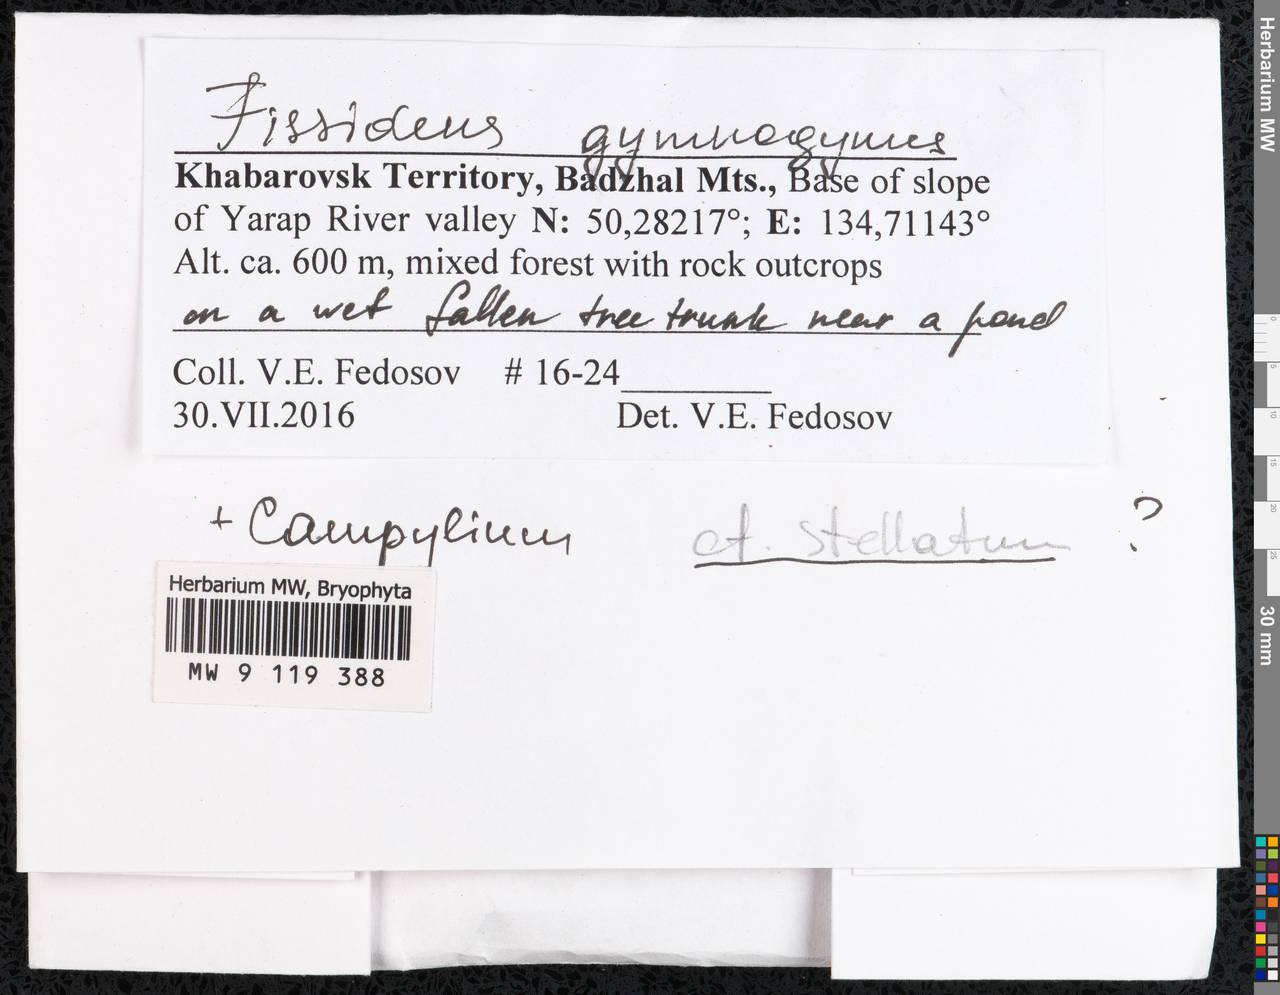 Fissidens gymnogynus
Khabarovsk Territory, Badzhal Mts., Base of slope
of Yarap River valley N: 50,28217°; E: 134,71143°
Alt. ca. 600 m, mixed forest with rock outcrops
on a wet fallen tree trunk near a pond
Coll. V.E. Fedosov # 16-24
30.VII.2016 Det. V.E. Fedosov
+ Campylium cf. stellatum ?
Herbarium MW, Bryophyta
MW 9 119 388
Herbarium MW
0
5
10
15
20
25
30 mm